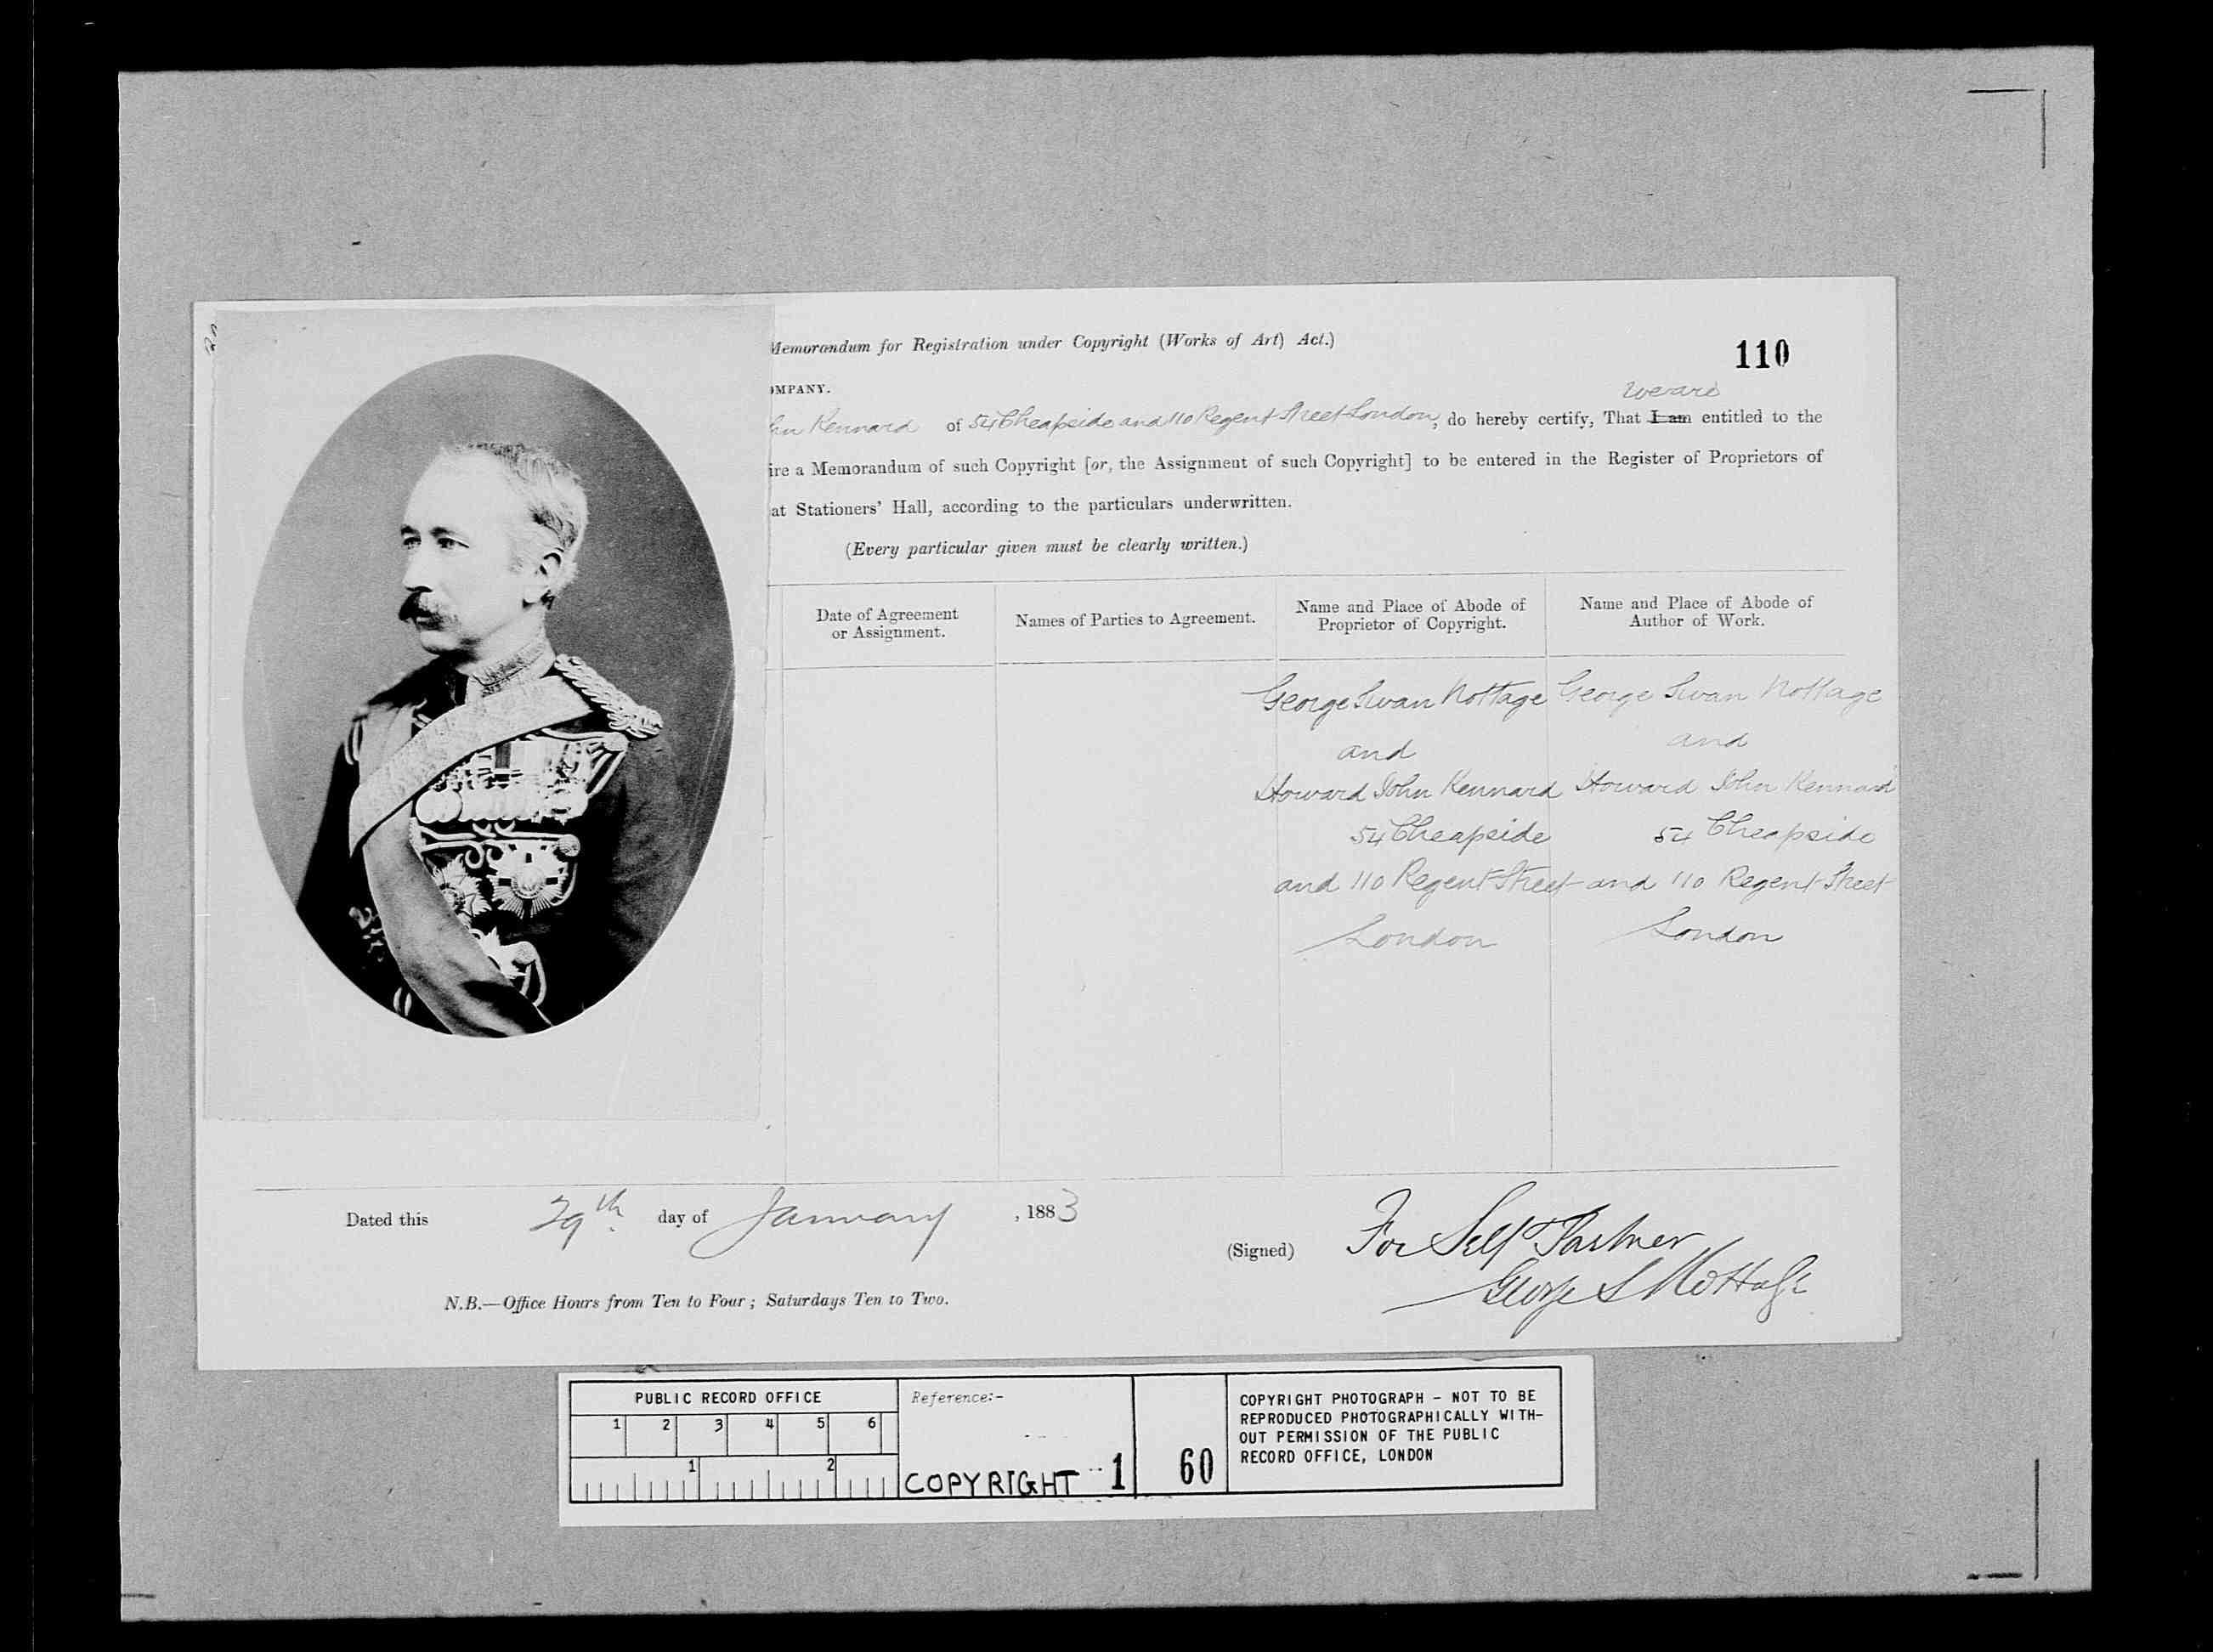 Memorandum for Registration under Copyright (Works of Art) Act.)
110
OMPANY.
we are
hn Kennard of 54 Cheapside and 110 Regent Street London, do hereby certify, That I am entitled to the
ire a Memorandum of such Copyright [or, the Assignment of such Copyright] to be entered in the Register of Proprietors of
at Stationers' Hall, according to the particulars underwritten.
(Every particular given must be clearly written.)
Date of Agreement
or Assignment.
Names of Parties to Agreement.
Name and Place of Abode of
Proprietor of Copyright.
Name and Place of Abode of
Author of Work.
George Swan Nottage
and
Howard John Kennard
54 Cheapside
and 110 Regent Street
London
George Swan Nottage
and
Howard John Kennard
54 Cheapside
and 110 Regent Street
London
Dated this 29th day of January, 1883
(Signed) For Self & Partner
George S Nottage
N.B.—Office Hours from Ten to Four; Saturdays Ten to Two.
PUBLIC RECORD OFFICE
1 2 3 4 5 6
1 2
Reference:-
COPYRIGHT 1
60
COPYRIGHT PHOTOGRAPH - NOT TO BE
REPRODUCED PHOTOGRAPHICALLY WITH-
OUT PERMISSION OF THE PUBLIC
RECORD OFFICE, LONDON